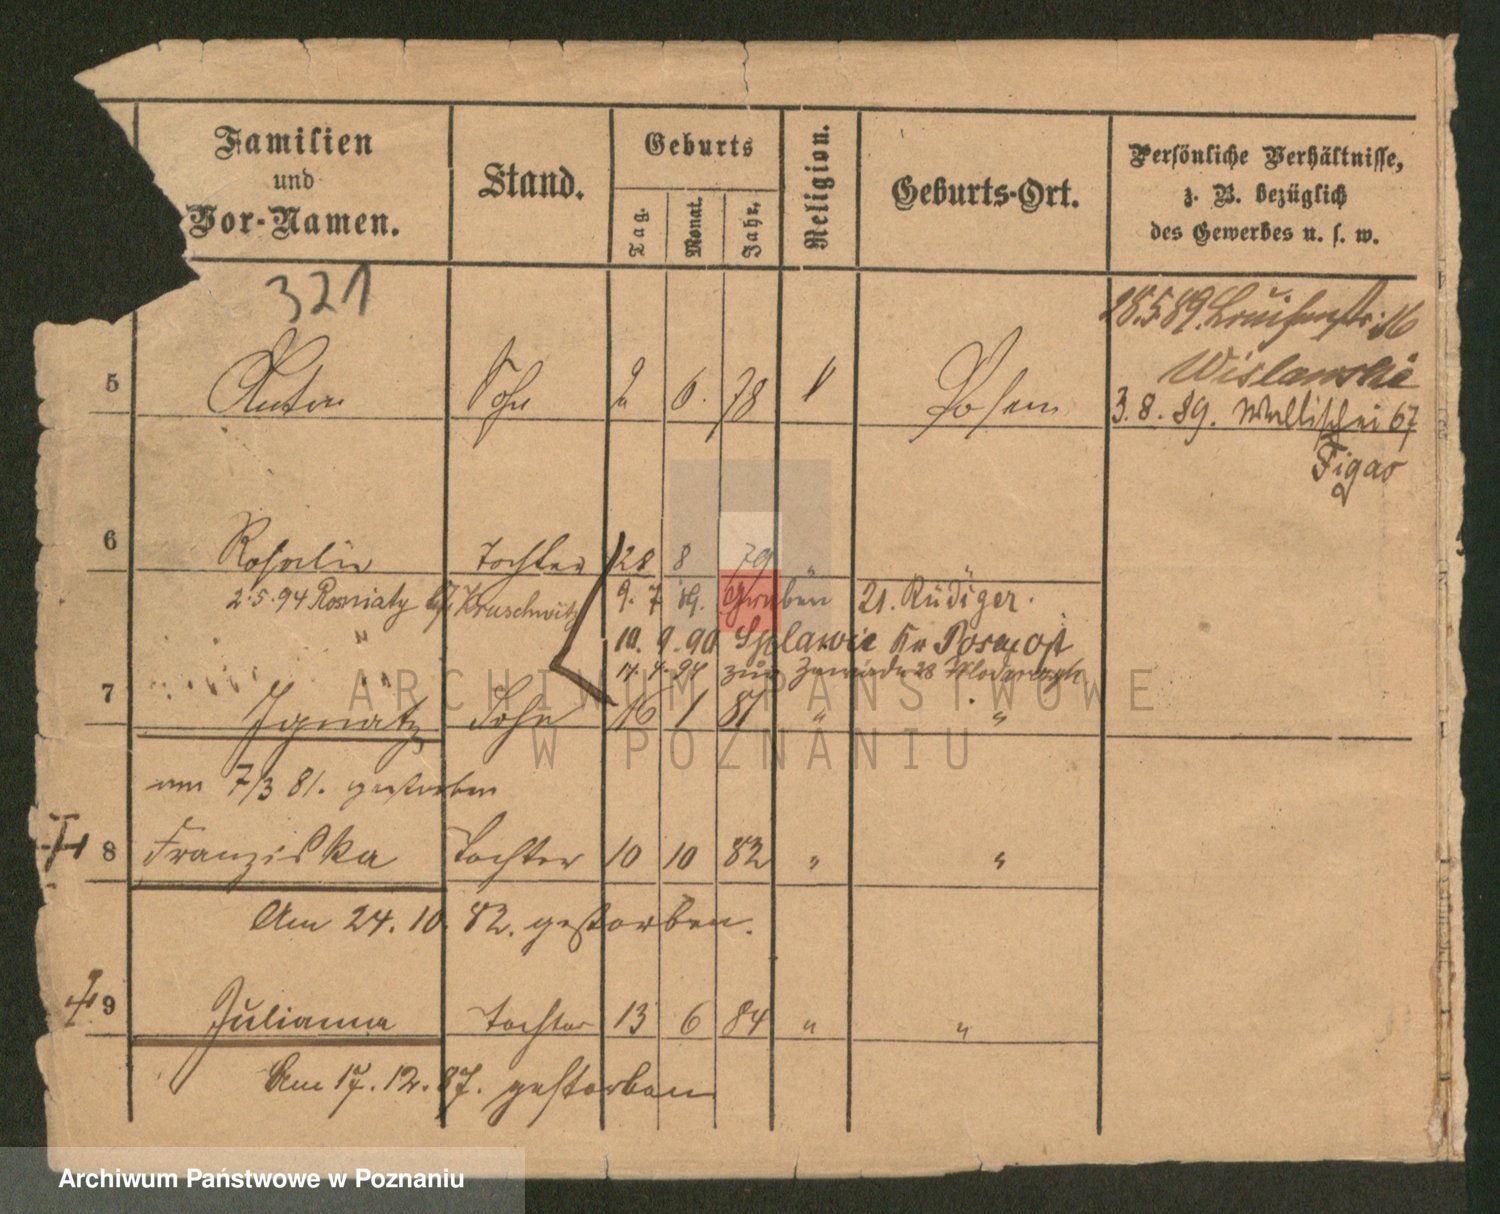 Familien
und
Vor-Namen.
Stand.
Geburts
Tag.
Monat.
Jahr.
Religion.
Geburts-Ort.
Persönliche Verhältnisse,
z. B. bezüglich
des Gewerbes u. s. w.
321
28.5.89. Louisenstr. 16
Wislanski
5 Anton Sohn 2 6. 78 Posen
3. 8. 89. Wallischei 67
Figas
6 Rosalie Tochter 28 8 79 " "
2.5.94 Kruschwitz
9. 7 89. Graben 21. Rüdiger.
10. 9. 90 Splawie Kr Posen Ost
17. 4. 94 28
7 Ignatz Sohn 16 1 81 " "
am 7/3 81. gestorben
8 Franziska Tochter 10 10 82 " "
Am 24. 10. 82. gestorben.
9 Julianna Tochter 13 6 84 " "
Am 17. 12. 87. gestorben
ARCHIWUM PAŃSTWOWE
W POZNANIU
Archiwum Państwowe w Poznaniu